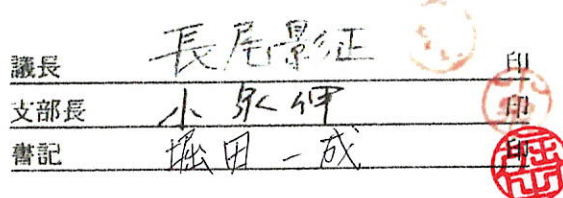 議長 長尾景征 印
支部長 小泉伊 印
書記 堀田一成 印